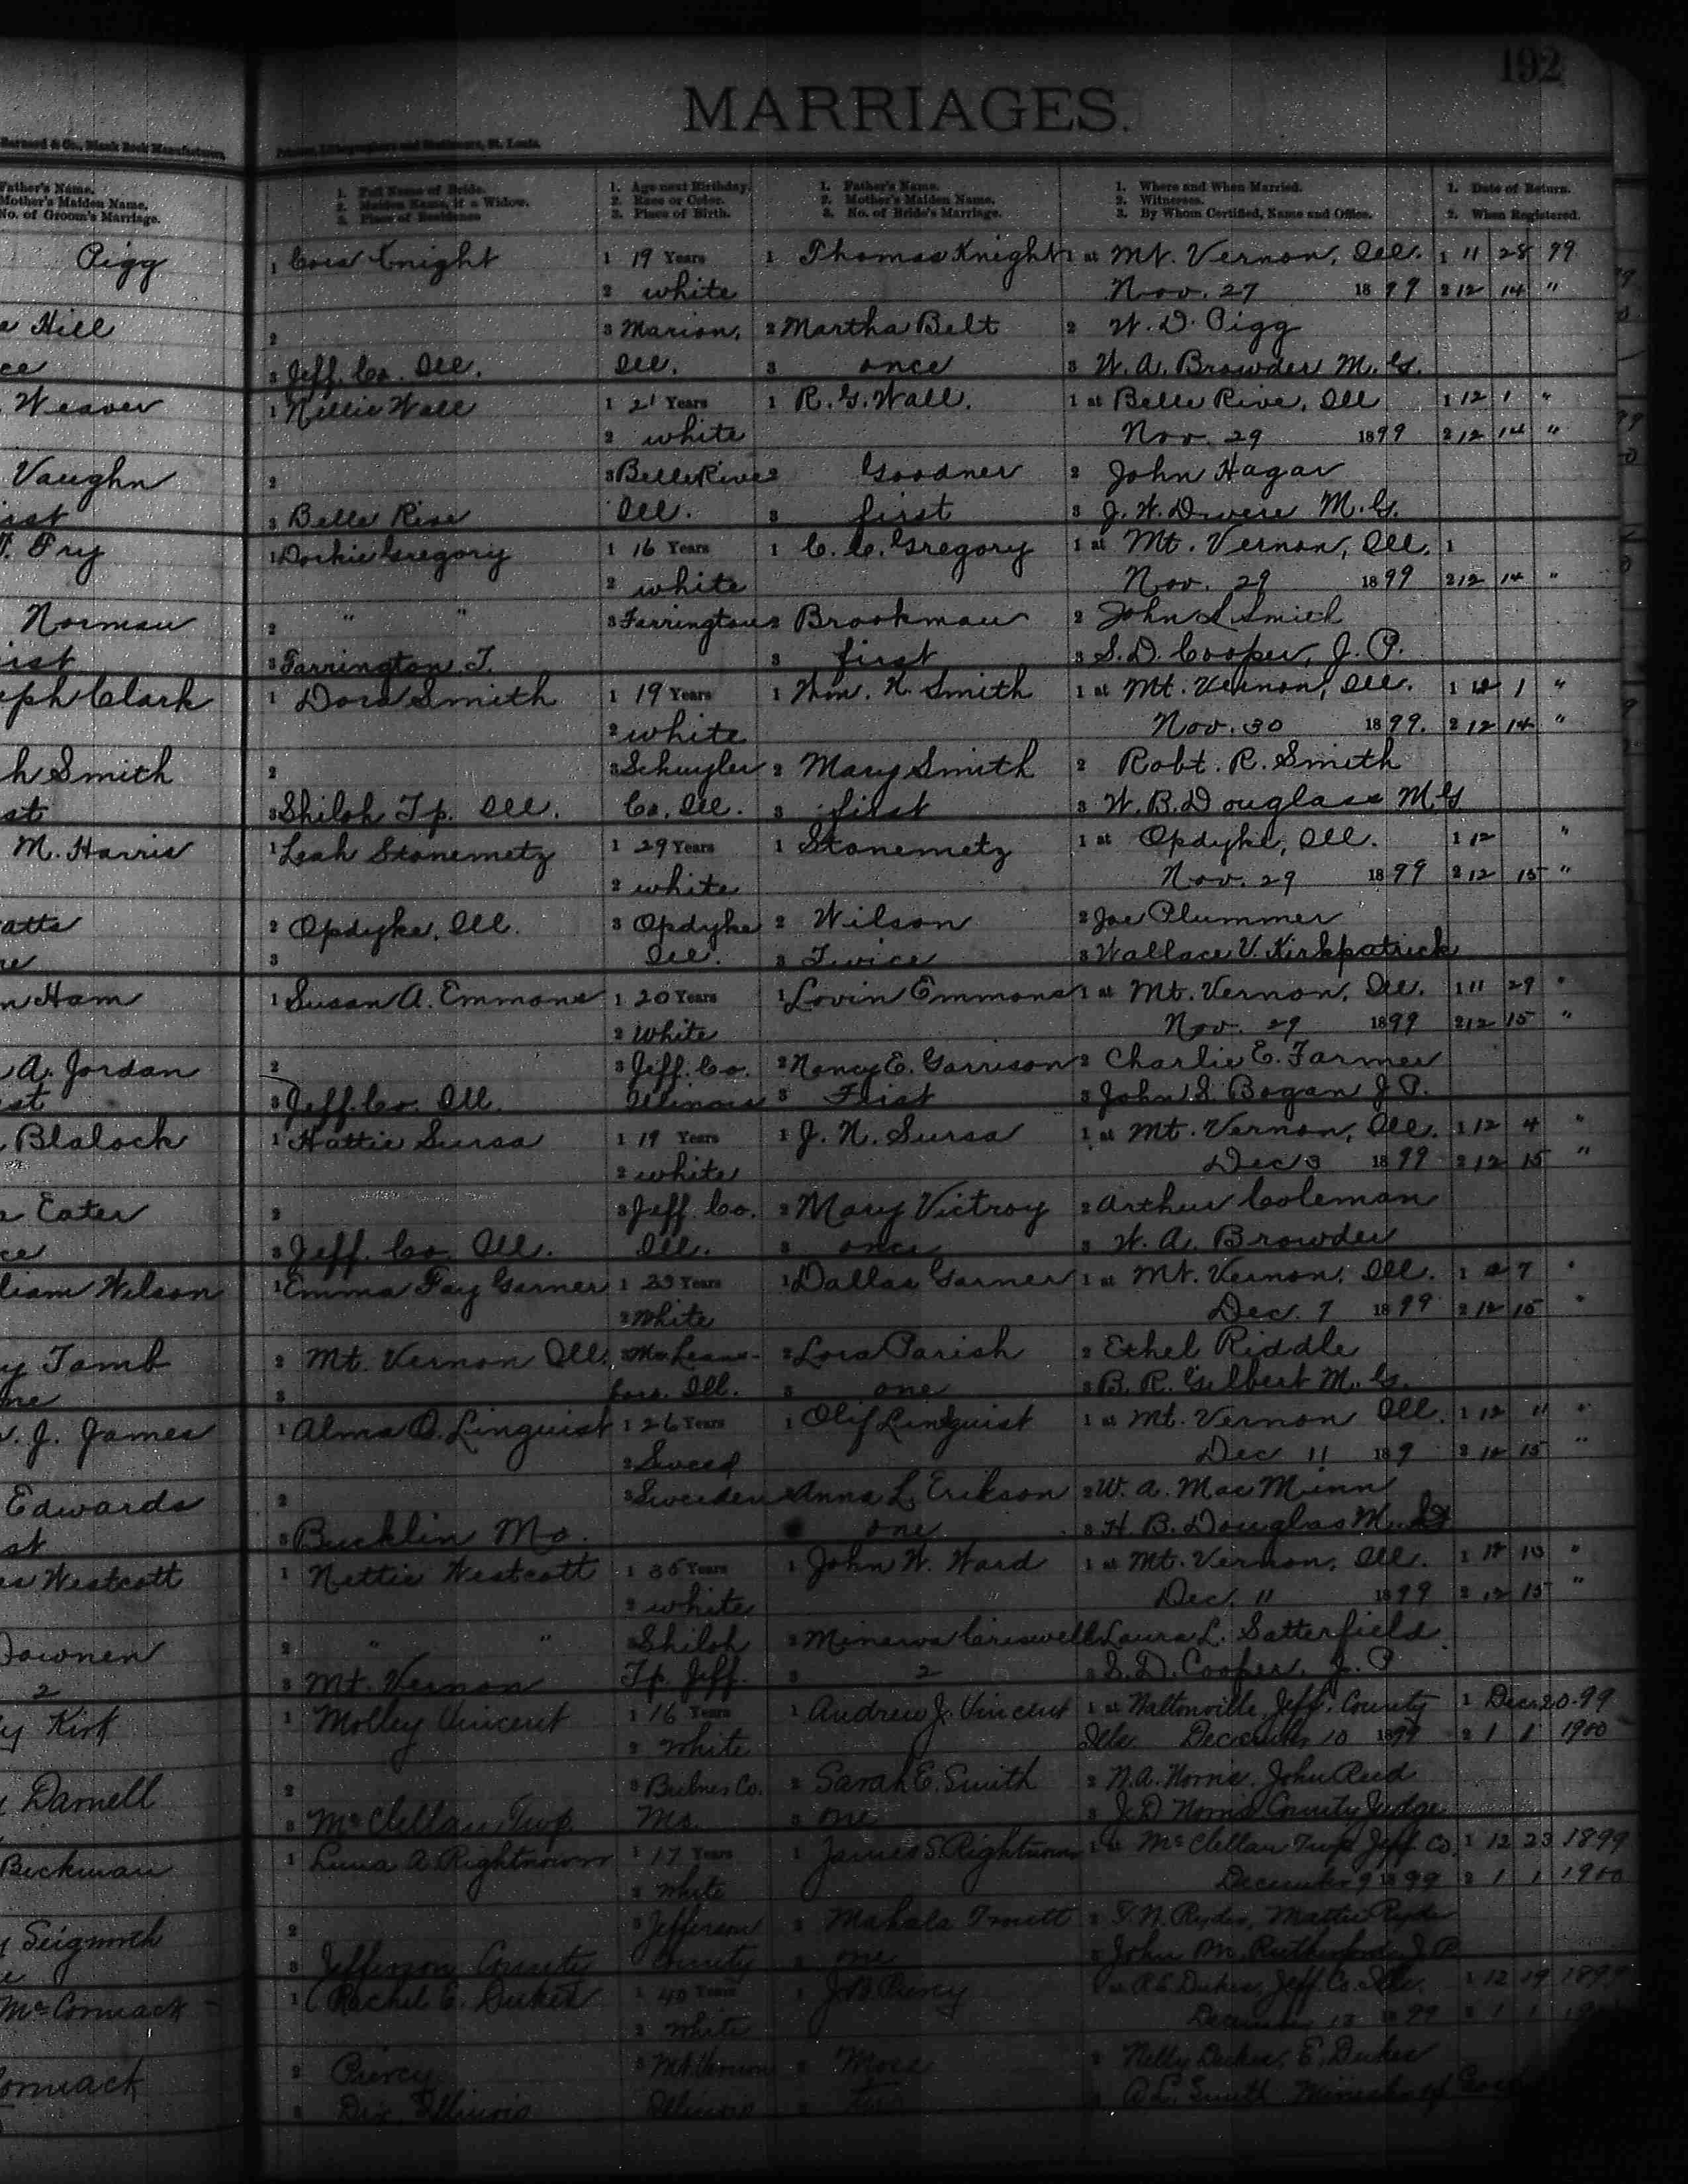 192
MARRIAGES.
Barnard & Co., Blank Book Manufacturers, Printers, Lithographers and Stationers, St. Louis.
Father's Name. 1. Full Name of Bride. 1. Age next Birthday. 1. Father's Name. 1. Where and When Married. 1. Date of Return.
Mother's Maiden Name. 2. Maiden Name, if a Widow. 2. Race or Color. 2. Mother's Maiden Name. 2. Witnesses.
No. of Groom's Marriage. 3. Place of Residence 3. Place of Birth. 3. No. of Bride's Marriage. 3. By Whom Certified, Name and Office. 2. When Registered.
Pigg 1 Cora Knight 1 19 Years 1 Thomas Knight 1 at Mt. Vernon, Ill. 1 11 28 99
2 white Nov. 27 1899 2 12 14 "
Hill 2 3 Marion, 2 Martha Belt 2 W. D. Pigg
3 Jeff. Co. Ill. Ill. 3 once 3 W. A. Browder M. G.
Weaver 1 Nellie Wall 1 21 Years 1 R. G. Wall. 1 at Belle Rive, Ill 1 12 1 "
2 white Nov. 29 1899 2 12 14 "
Vaughn 2 3 Belle Rive 2 Goodner 2 John Hagar
3 Belle Rive Ill. 3 first 3 J. W. M. G.
Fry 1 Dockie Gregory 1 16 Years 1 C. C. Gregory 1 at Mt. Vernon, Ill. 1
2 white Nov. 29 1899 2 12 14 "
Norman 2 " " 3 Farrington 2 Brookman 2 John L Smith
3 Farrington T. 3 first 3 S. D. Cooper, J. P.
eph Clark 1 Dora Smith 1 19 Years 1 Wm. N. Smith 1 at Mt. Vernon, Ill. 1 12 1 "
2 white Nov. 30 1899. 2 12 14 "
h Smith 2 3 Schuyler 2 Mary Smith 2 Robt. R. Smith
st 3 Shiloh Tp. Ill. Co. Ill. 3 first 3 W. B. Douglass M. G
M. Harris 1 Leah Stonemetz 1 29 Years 1 Stonemetz 1 at Opdyke, Ill. 1 12 "
2 white Nov. 29 1899 2 12 15 "
atts 2 Opdyke, Ill. 3 Opdyke 2 Wilson 2 Joe Plummer
3 Ill. 3 Twice 3 Wallace V. Kirkpatrick
n Ham 1 Susan A. Emmons 1 20 Years 1 Lovin Emmons 1 at Mt. Vernon, Ill. 1 11 29 "
2 White Nov. 29 1899 2 12 15 "
A. Jordan 2 3 Jeff. Co. 2 Nancy E. Garrison 2 Charlie E. Farmer
st 3 Jeff. Co. Ill. Illinois 3 First 3 John S. Bogan J P.
Blalock 1 Hattie Sursa 1 19 Years 1 J. N. Sursa 1 at Mt. Vernon, Ill. 1 12 4 "
2 white Dec 3 1899 2 12 15 "
Eater 2 3 Jeff. Co. 2 Mary Victroy 2 Arthur Coleman
ce 3 Jeff. Co. Ill. Ill. 3 once 3 W. A. Browder
liam Wilson 1 Emma Fay Garner 1 23 Years 1 Dallas Garner 1 at Mt. Vernon, Ill. 1 12 7 "
2 White Dec. 7 1899 2 12 15 "
y Tamb 2 Mt. Vernon Ill. 3 McLeans- 2 Lora Parish 2 Ethel Riddle
ne 3 boro. Ill. 3 one 3 B. R. Gilbert M. G.
J. James 1 Alma O. Linquist 1 26 Years 1 Olif Lindquist 1 at Mt. Vernon Ill. 1 12 11 "
2 Sweed Dec 11 189 2 12 15 "
Edwards 2 3 Sweeden 2 Anna L. Erikson 2 W. A. MacMinn
st 3 Bucklin Mo. one 3 H. B. Douglas M.
es Westcott 1 Nettie Westcott 1 35 Years 1 John W. Ward 1 at Mt. Vernon, Ill. 1 12 13 "
2 white Dec. 11 1899 2 12 15 "
Downen 2 " " 3 Shiloh 2 Minerva Criswell Laura L. Satterfield
2 3 Mt. Vernon Tp. Jeff. 3 2 3 S. D. Cooper, J. P
y Kirk 1 Molley Vincent 1 16 Years 1 Andrew J. Vincent 1 at Waltonville, Jeff. County 1 Dec. 20-99
2 White Ills December 10 1899 2 1 1 1900
Darnell 2 3 Co. 2 Sarah E. Smith 2 N. A. Norris. John Reed
3 McClellan Twp. Mo. 3 one 3 J. D Norris County Judge
Beckman 1 Luna A. Rightnowar 1 17 Years 1 James S. Rightnowar 1 at McClellan Twp. Jeff. Co. 1 12 23 1899
2 White December 9 1899 2 1 1 1900
Seigmoth 2 3 Jefferson 2 Mahala 2 T. N. Ryder, Mattie Ryder
3 Jefferson County County 3 one 3 John M. Rutherford J P
McCormack 1 Rachel E. Dukes 1 40 Years 1 Piercy 1 at Dukes, Jeff. Co. Ills. 1 12 19 1899
2 White December 13 1899 2 1 1
ormack 2 Piercy 3 Mt. Vernon 2 Moss 2 Nelly Dukes, E. Dukes
3 Dix, Illinois Illinois 3 Smith Minister of